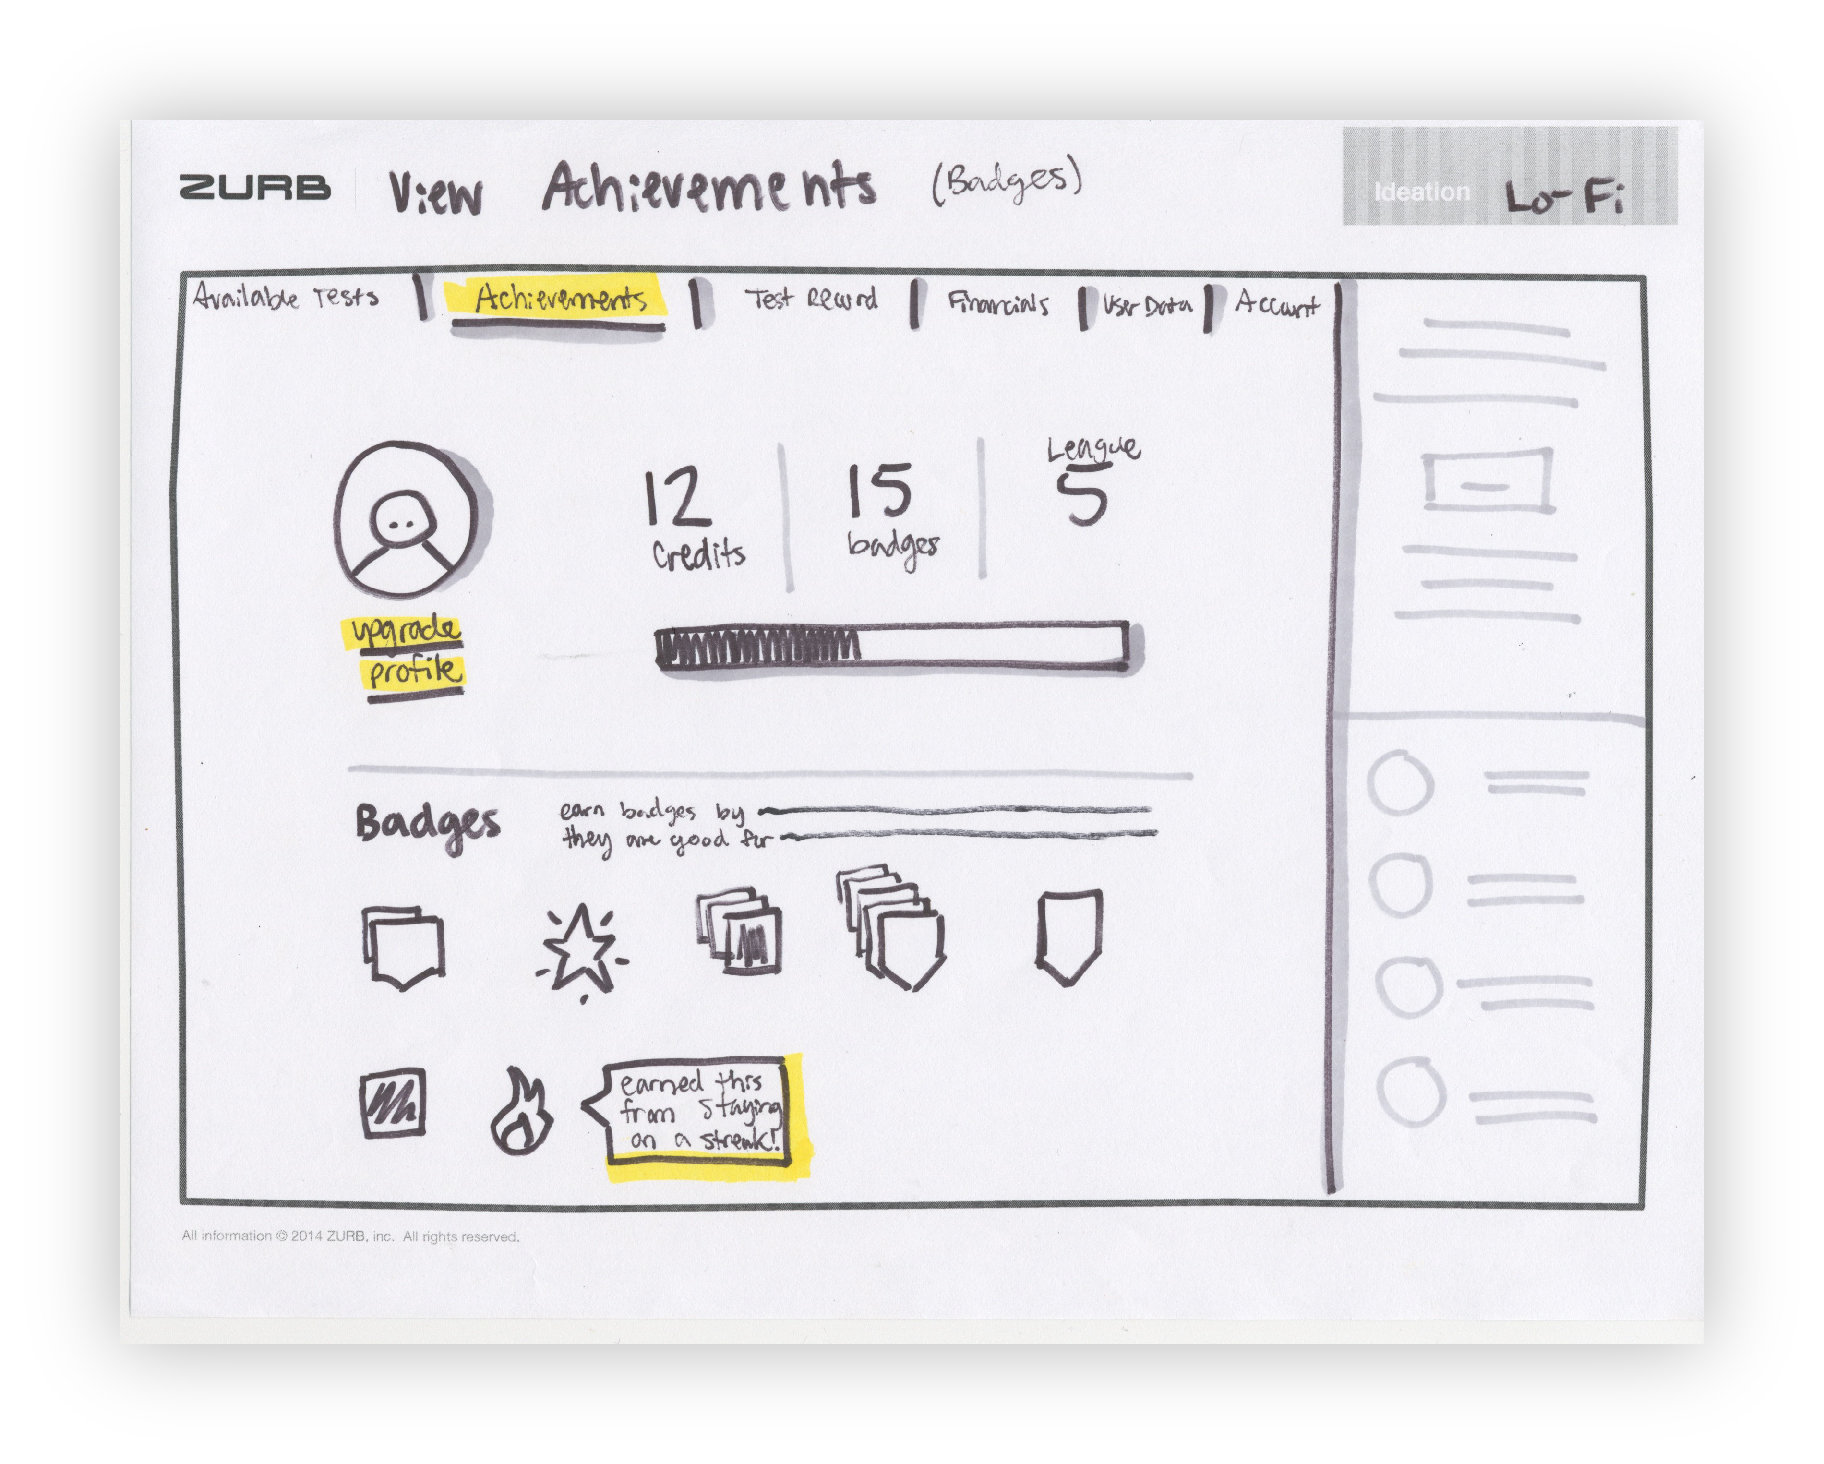 ZURB View Achievements (Badges)
Ideation Lo-Fi
Available Tests Achievements Test Record Financials User Data Account
12
Credits
15
badges
League
5
upgrade
profile
Badges
earn badges by
they are good for
earned this
from staying
on a streak!
All information © 2014 ZURB, inc. All rights reserved.